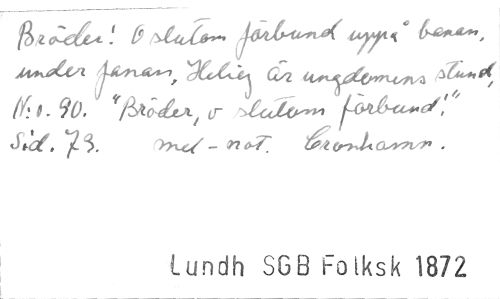 Bröder! O slutom förbund uppå banan,
under fanan, Helig är ungdomens stund,
N:o. 90. "Bröder, o slutom förbund!"
Sid. 79. mel-not. Cronhamn.
Lundh SGB Folksk 1872